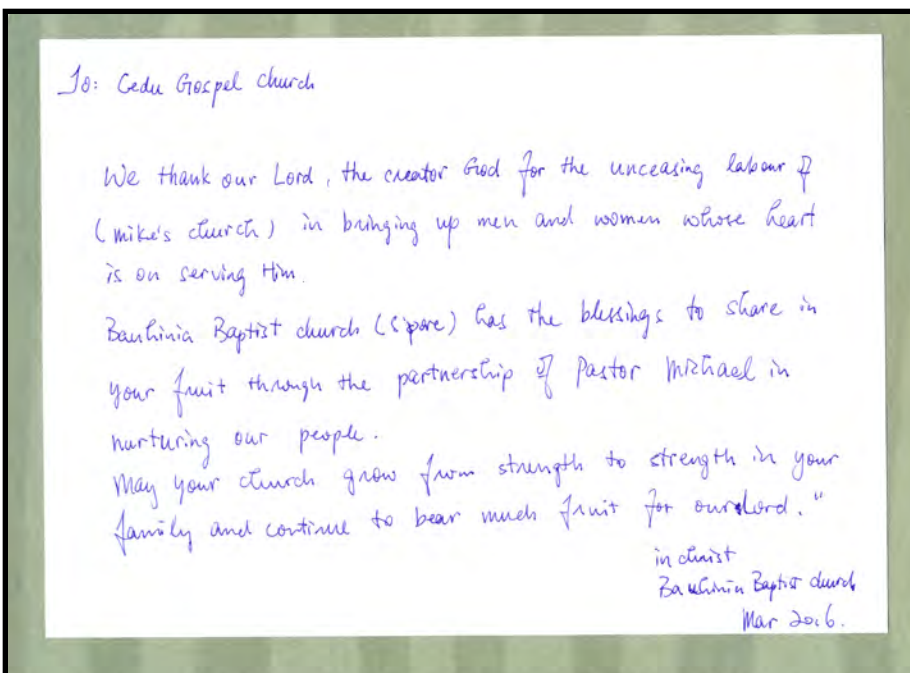 To: Gedu Gospel church
We thank our Lord, the creator God for the unceasing labour of
(mike's church) in bringing up men and women whose heart
is on serving Him.
Bauhinia Baptist church (s'pore) has the blessings to share in
your fruit through the partnership of Pastor Michael in
nurturing our people.
May your church grow from strength to strength in your
family and continue to bear much fruit for our Lord."
in christ
Bauhinia Baptist church
Mar 2016.